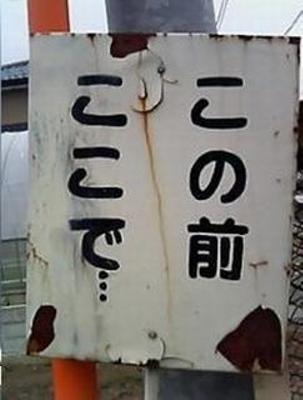 この前
ここで…